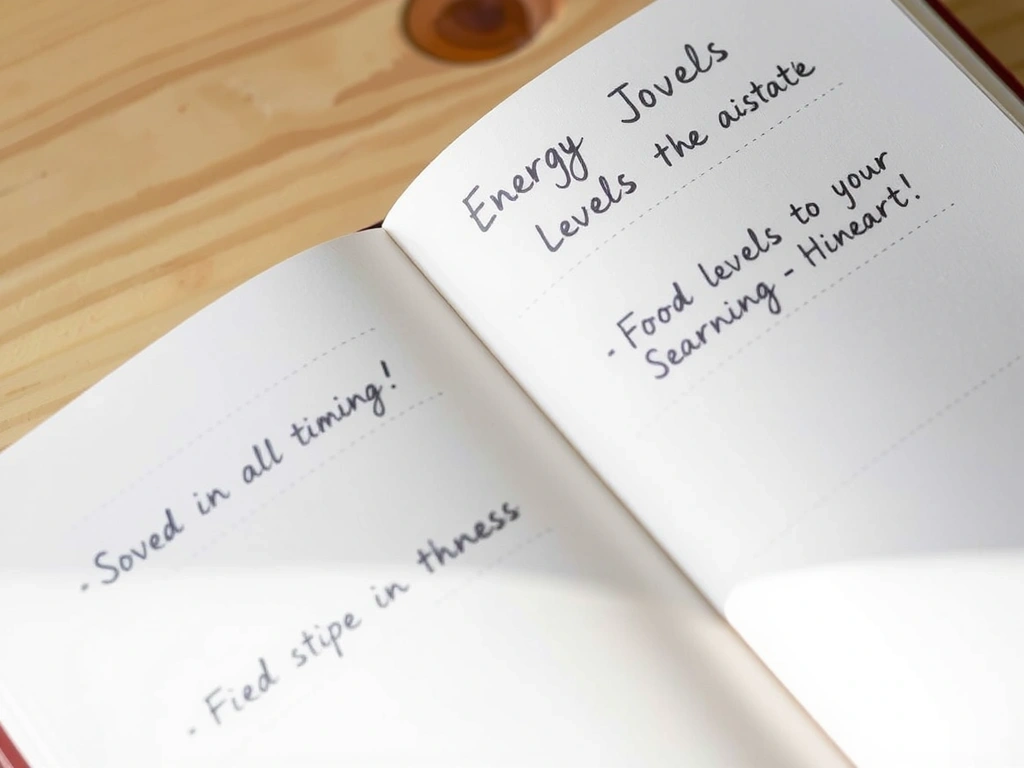 - Soved in all timing!
- Fied stipe in thness
Energy Jovels
Levels the aistate
- Food levels to your
Searning - Hineart!